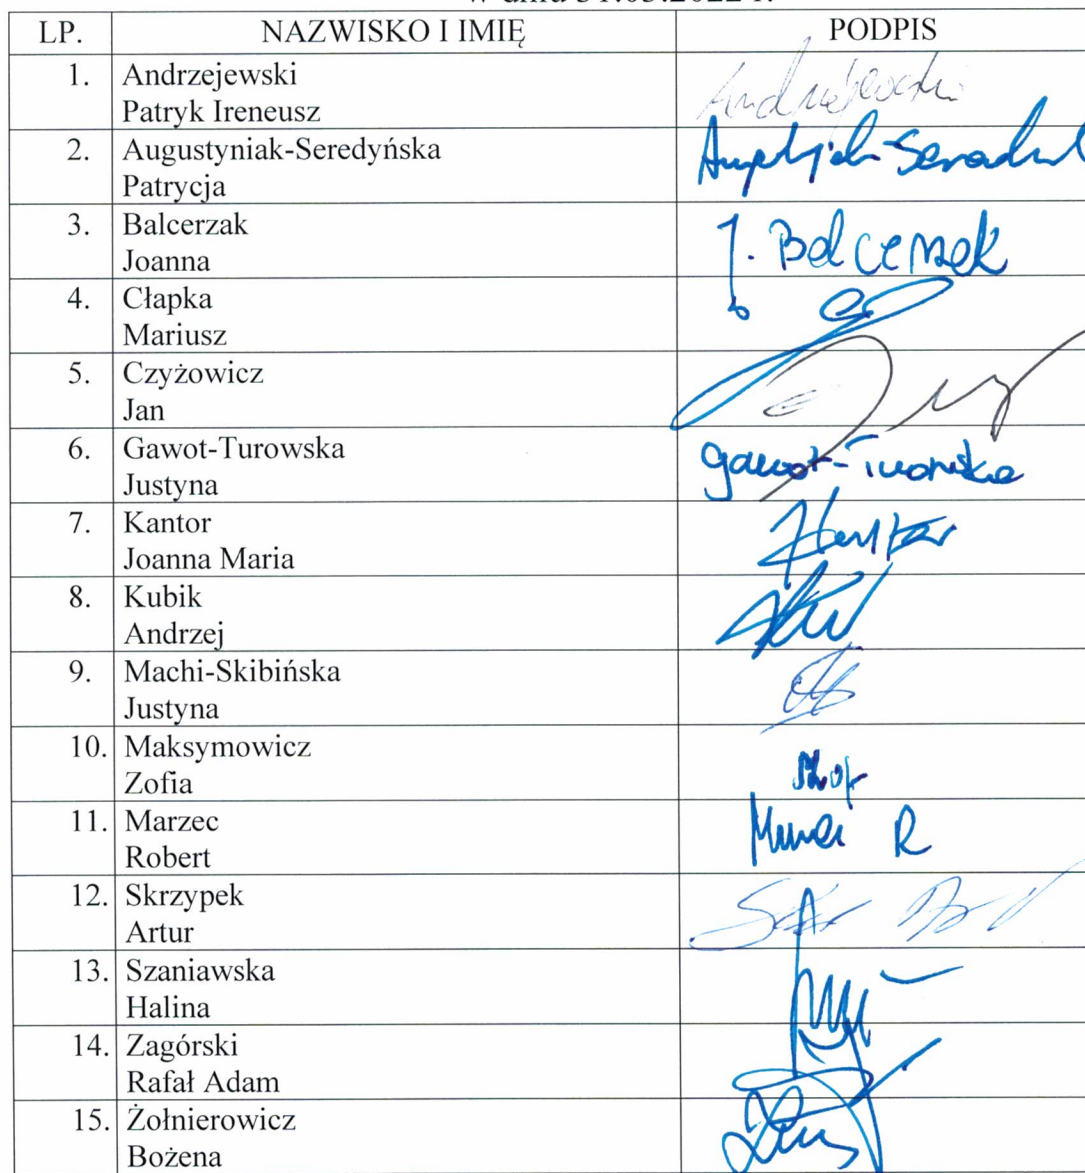 w dniu 31.03.2022 r.
LP. NAZWISKO I IMIĘ PODPIS
1. Andrzejewski
Patryk Ireneusz
Andrzejewski
2. Augustyniak-Seredyńska
Patrycja
3. Balcerzak
Joanna
J. Balcerzak
4. Cłapka
Mariusz
5. Czyżowicz
Jan
6. Gawot-Turowska
Justyna
Gawot-Turowska
7. Kantor
Joanna Maria
Kantor
8. Kubik
Andrzej
9. Machi-Skibińska
Justyna
10. Maksymowicz
Zofia
11. Marzec
Robert
Marzec R
12. Skrzypek
Artur
13. Szaniawska
Halina
14. Zagórski
Rafał Adam
15. Żołnierowicz
Bożena